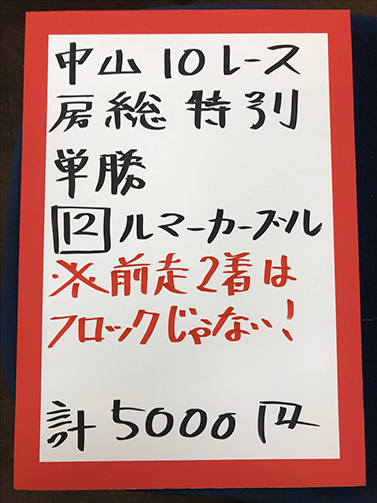 中山10レース
房総特別
単勝
12 ルマーカーズル
※前走2着は
フロックじゃない!
計5000円